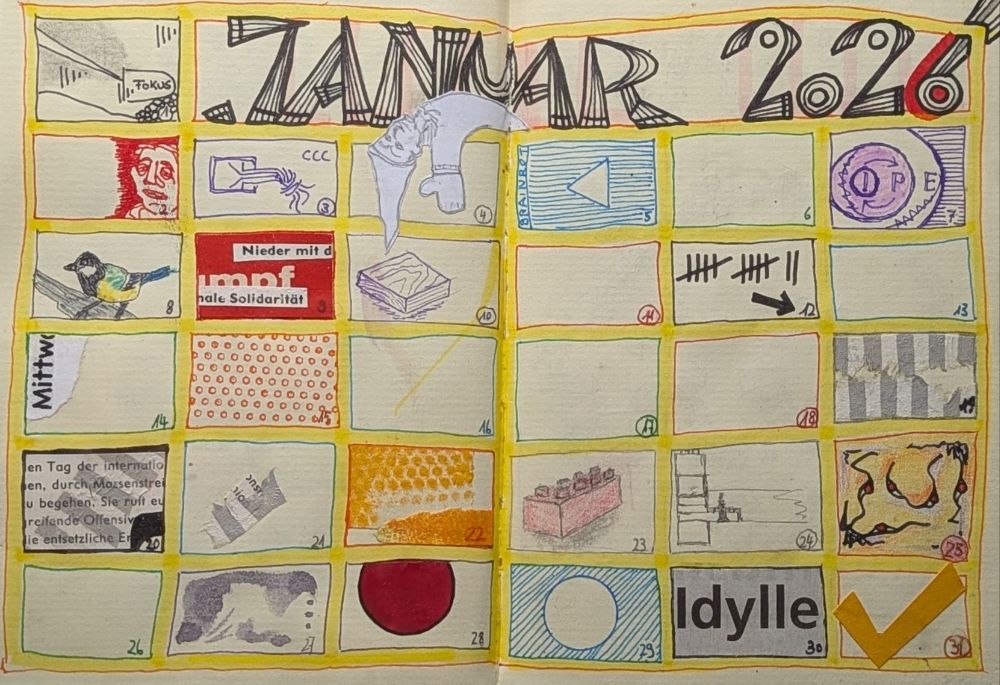 JANUAR 2026
FOKUS
2
CCC
3
4
BRAINROT
5
6
OPE
7
8
Nieder mit d
umpf
nale Solidarität
9
10
11
12
13
Mittwo
14
15
16
17
18
19
en Tag der internatio
en, durch Massenstrei
u begehen. Sie ruft eu
reifende Offensiv
die entsetzliche Er
20
21
22
23
24
25
26
27
28
29
Idylle
30
31